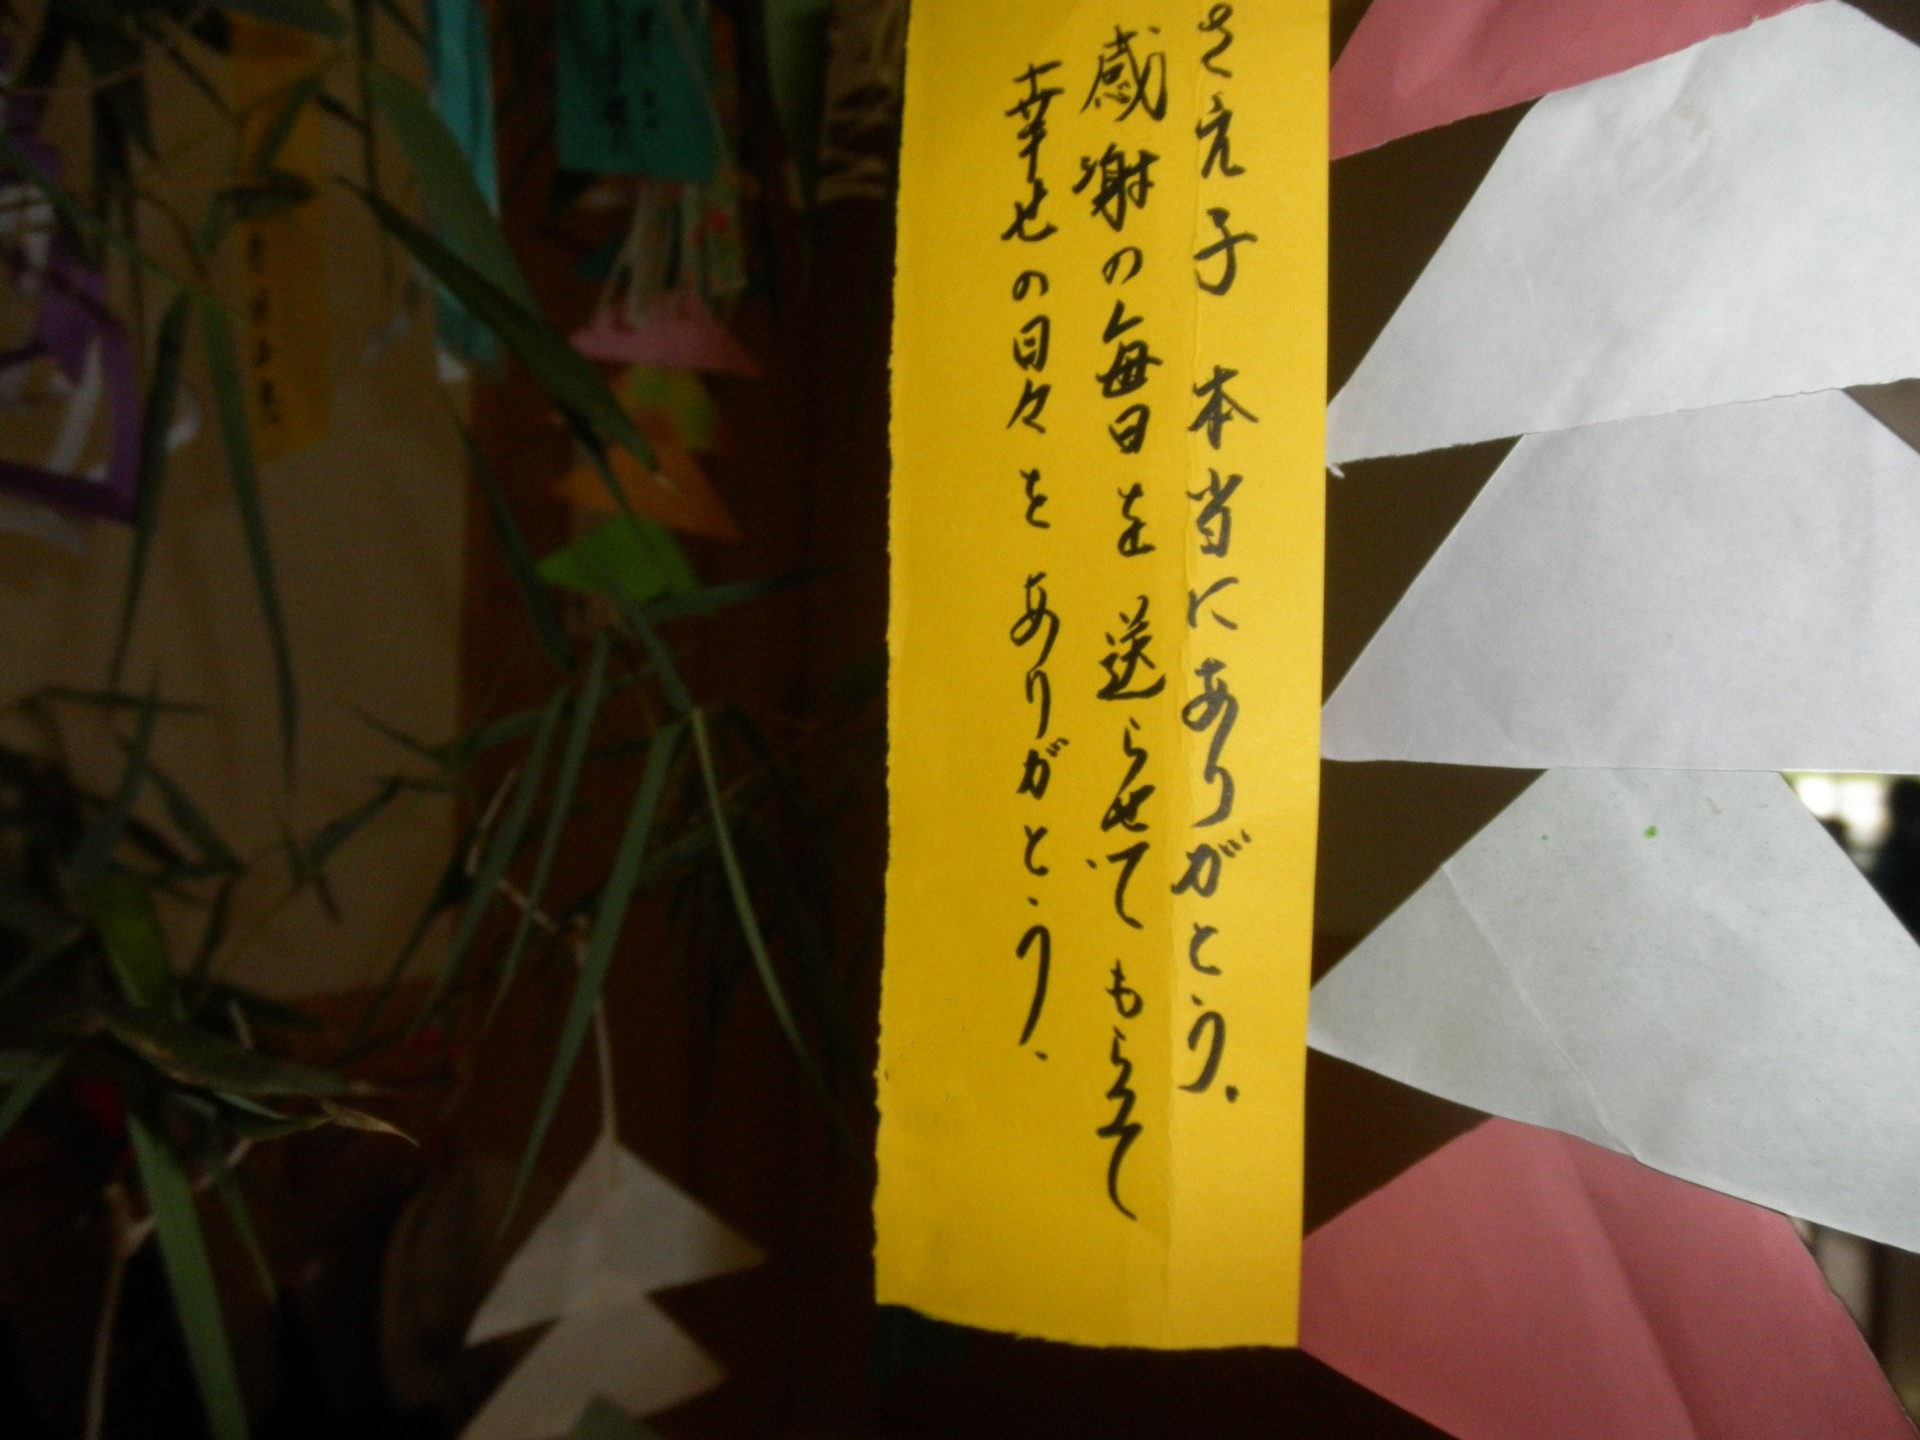 さえ子 本当にありがとう。
感謝の毎日を送らせてもらって
幸せの日々をありがとう、